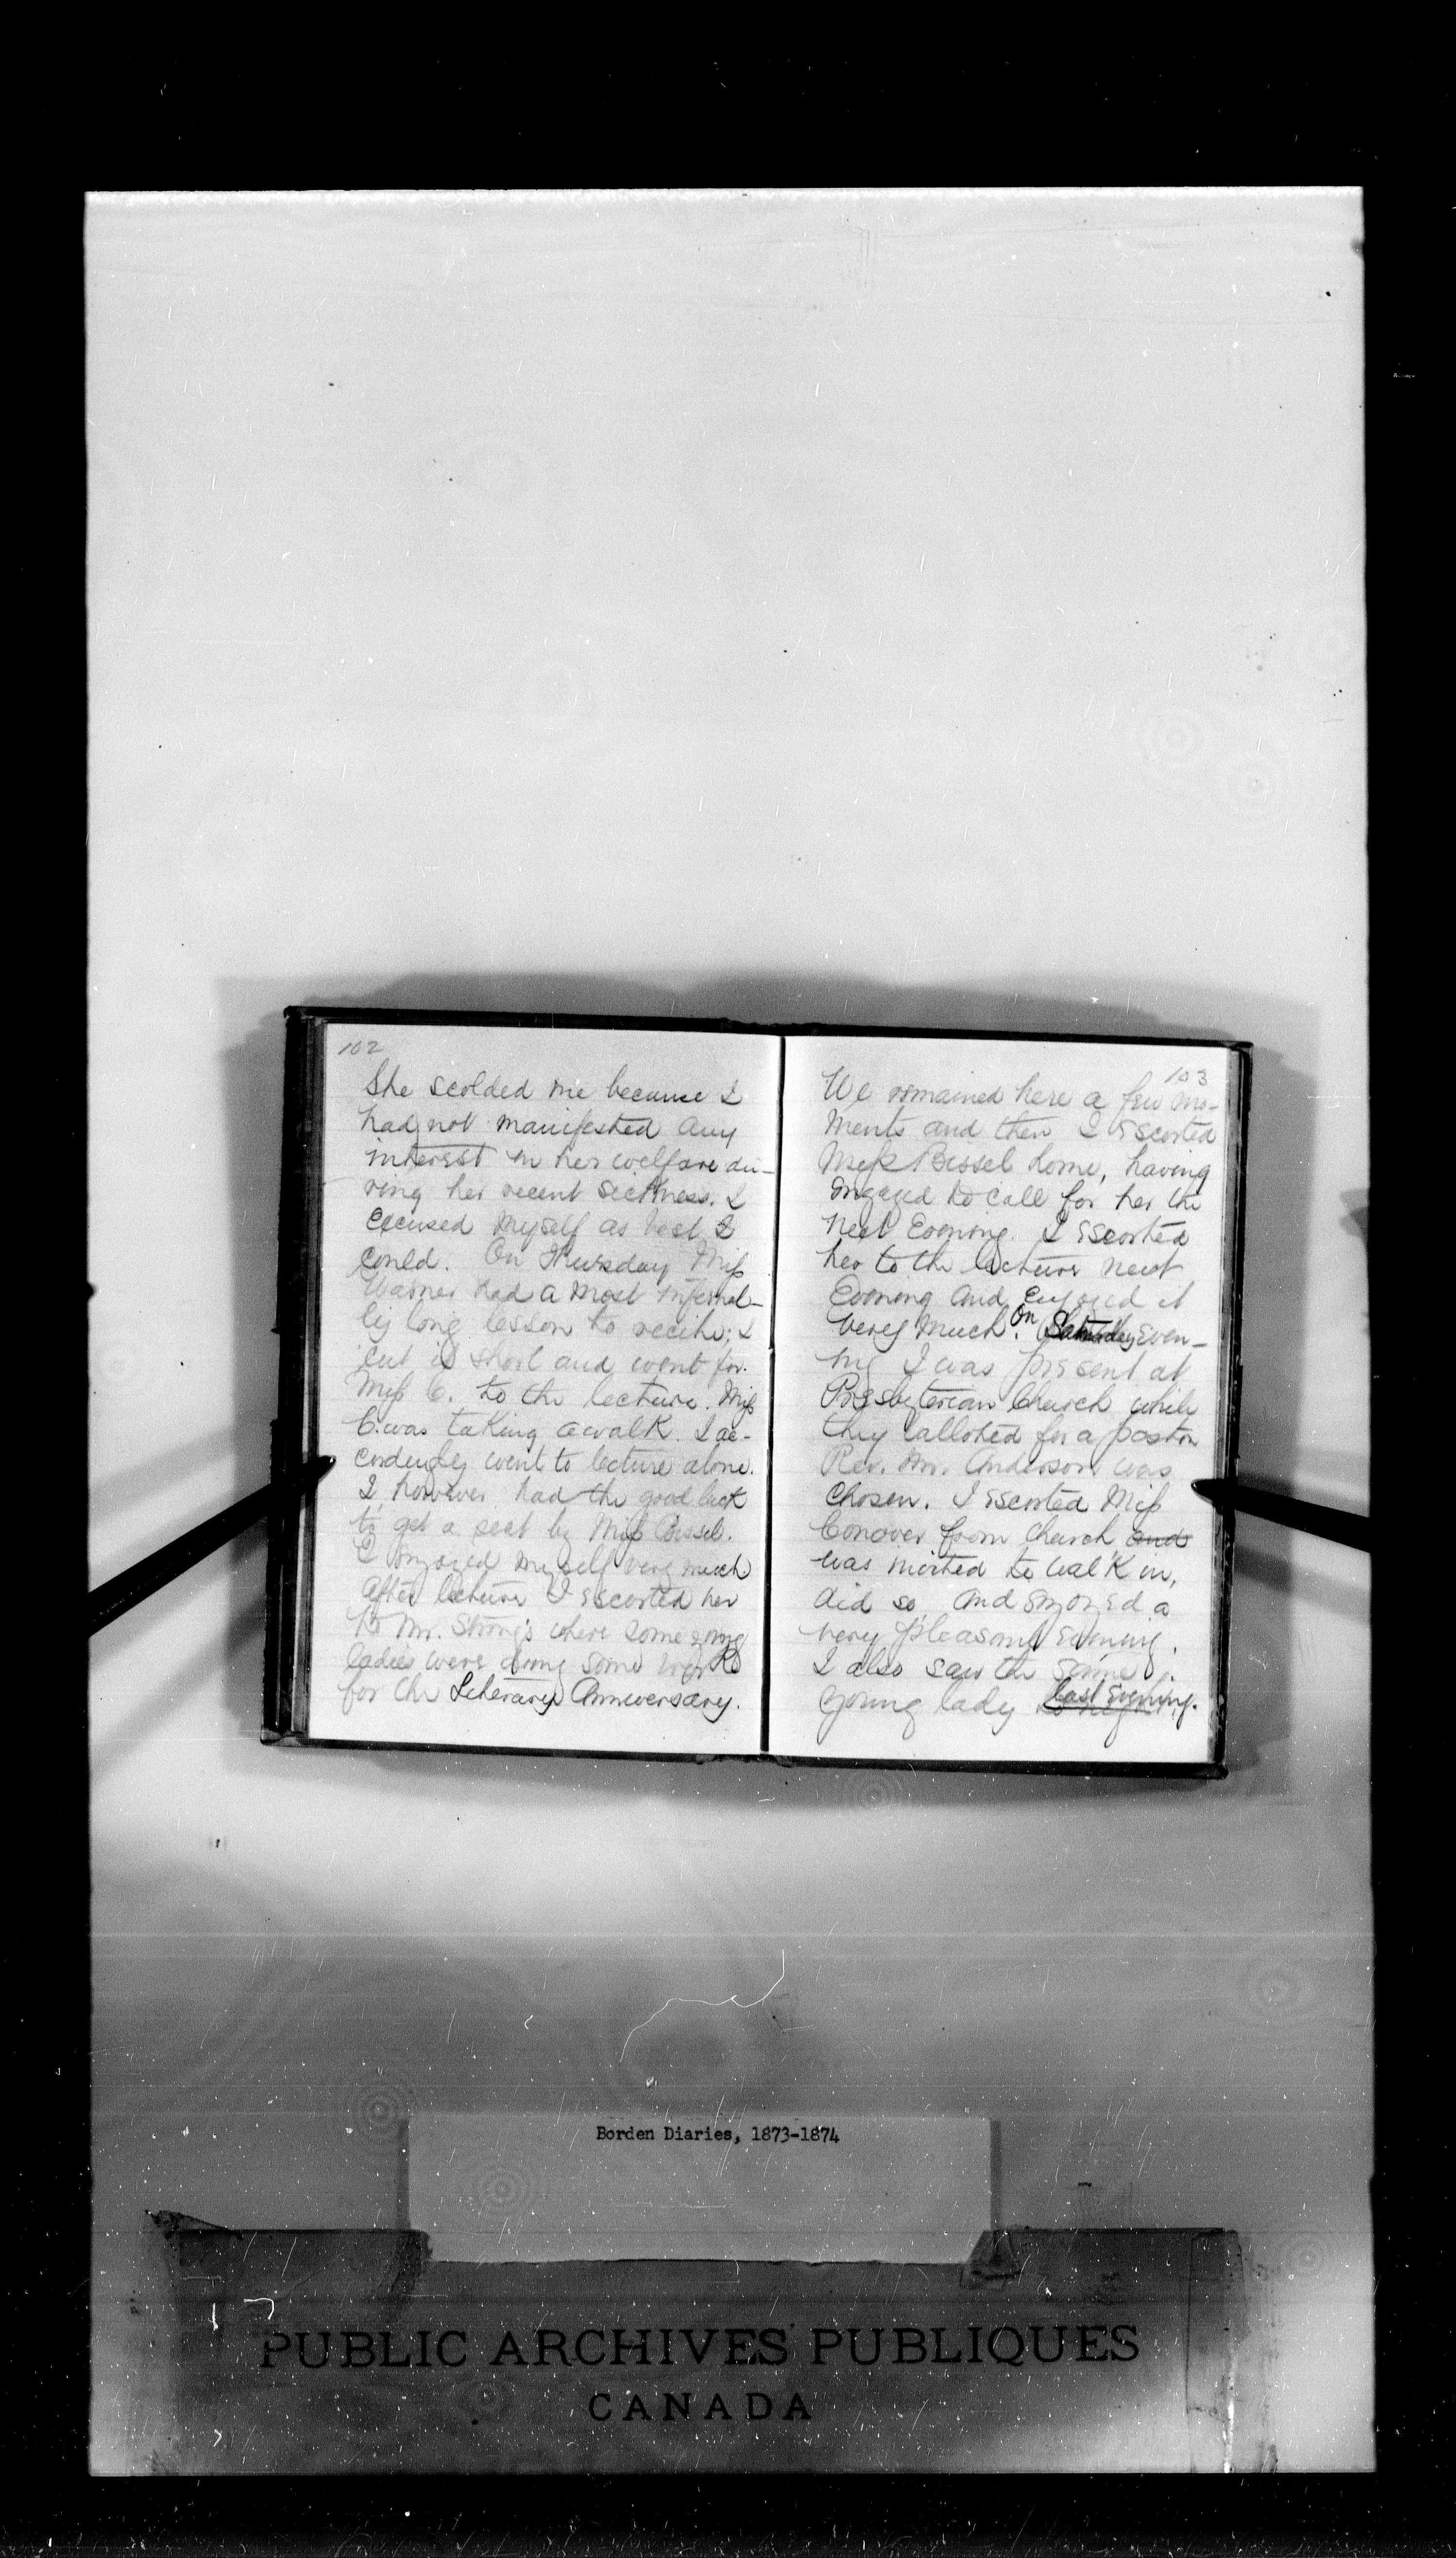 102
She scolded me because I
had not manifested any
interest in her welfare du-
ring her recent sickness. I
excused myself as best I
could. On Thursday Miss
Warner had a most infernal-
ly long lesson to recite; I
cut it short and went for
Miss C. to the lecture. Miss
C. was taking a walk. I ac-
cordingly went to lecture alone.
I however had the good luck
to get a seat by Miss Bissel.
I enjoyed myself very much
after lecture I escorted her
to Mr. Strong's where some young
ladies were doing some work
for the Literary Anniversary.
103
We remained here a few mo-
ments and then I escorted
Miss Bissel home, having
engaged to call for her the
next Evening. I escorted
her to the lecture next
Evening and enjoyed it
very much. On Saturday Even-
ing I was present at
Presbyterian Church while
they balloted for a pastor
Rev. Mr. Anderson was
chosen. I escorted Miss
Conover from church and
was invited to walk in,
did so and enjoyed a
very pleasant evening.
I also saw the same
young lady last Evening.
Borden Diaries, 1873-1874
PUBLIC ARCHIVES PUBLIQUES
CANADA